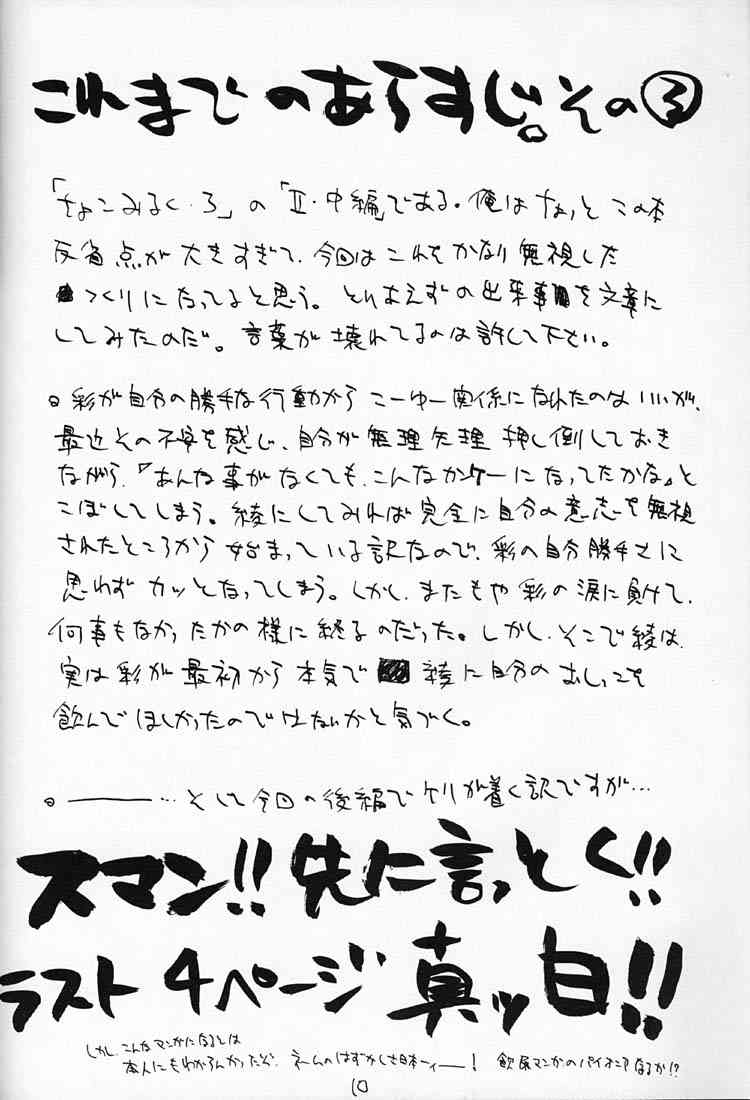 これまでのあらすじ。その③
「ちょこみるく・3」の「Ⅱ・中編」である。俺はちょっとこの本
反省点が大きすぎて、今回はこれをかなり無視した
つくりになってると思う。とりあえずの出来事を文章に
してみたのだ。言葉が壊れてるのは許して下さい。
○彩が自分の勝手な行動からこーゆー関係になれたのはいいが、
最近その不安を感じ、自分が無理矢理押し倒しておき
ながら、『あんな事がなくても、こんなカンケーになってたかな』と
こぼしてしまう。綾にしてみれば完全に自分の意志を無視
されたところから始まっている訳なので、彩の自分勝手さに
思わずカッとなってしまう。しかし、またもや彩の涙に負けて、
何事もなかったかの様に終るのだった。しかし、そこで綾は、
実は彩が最初から本気で綾に自分のおしっこを
飲んでほしかったのではないかと気づく。
○―――…そして今回の後編でケリが着く訳ですが…
スマン!!先に言っとく!!
ラスト4ページ真ッ白!!
しかし、こんなマンガになるとは
本人にもわからんかったぞ。ネームのはずかしさ日本一ィー!飲尿マンガのパイオニアなるか!?
10